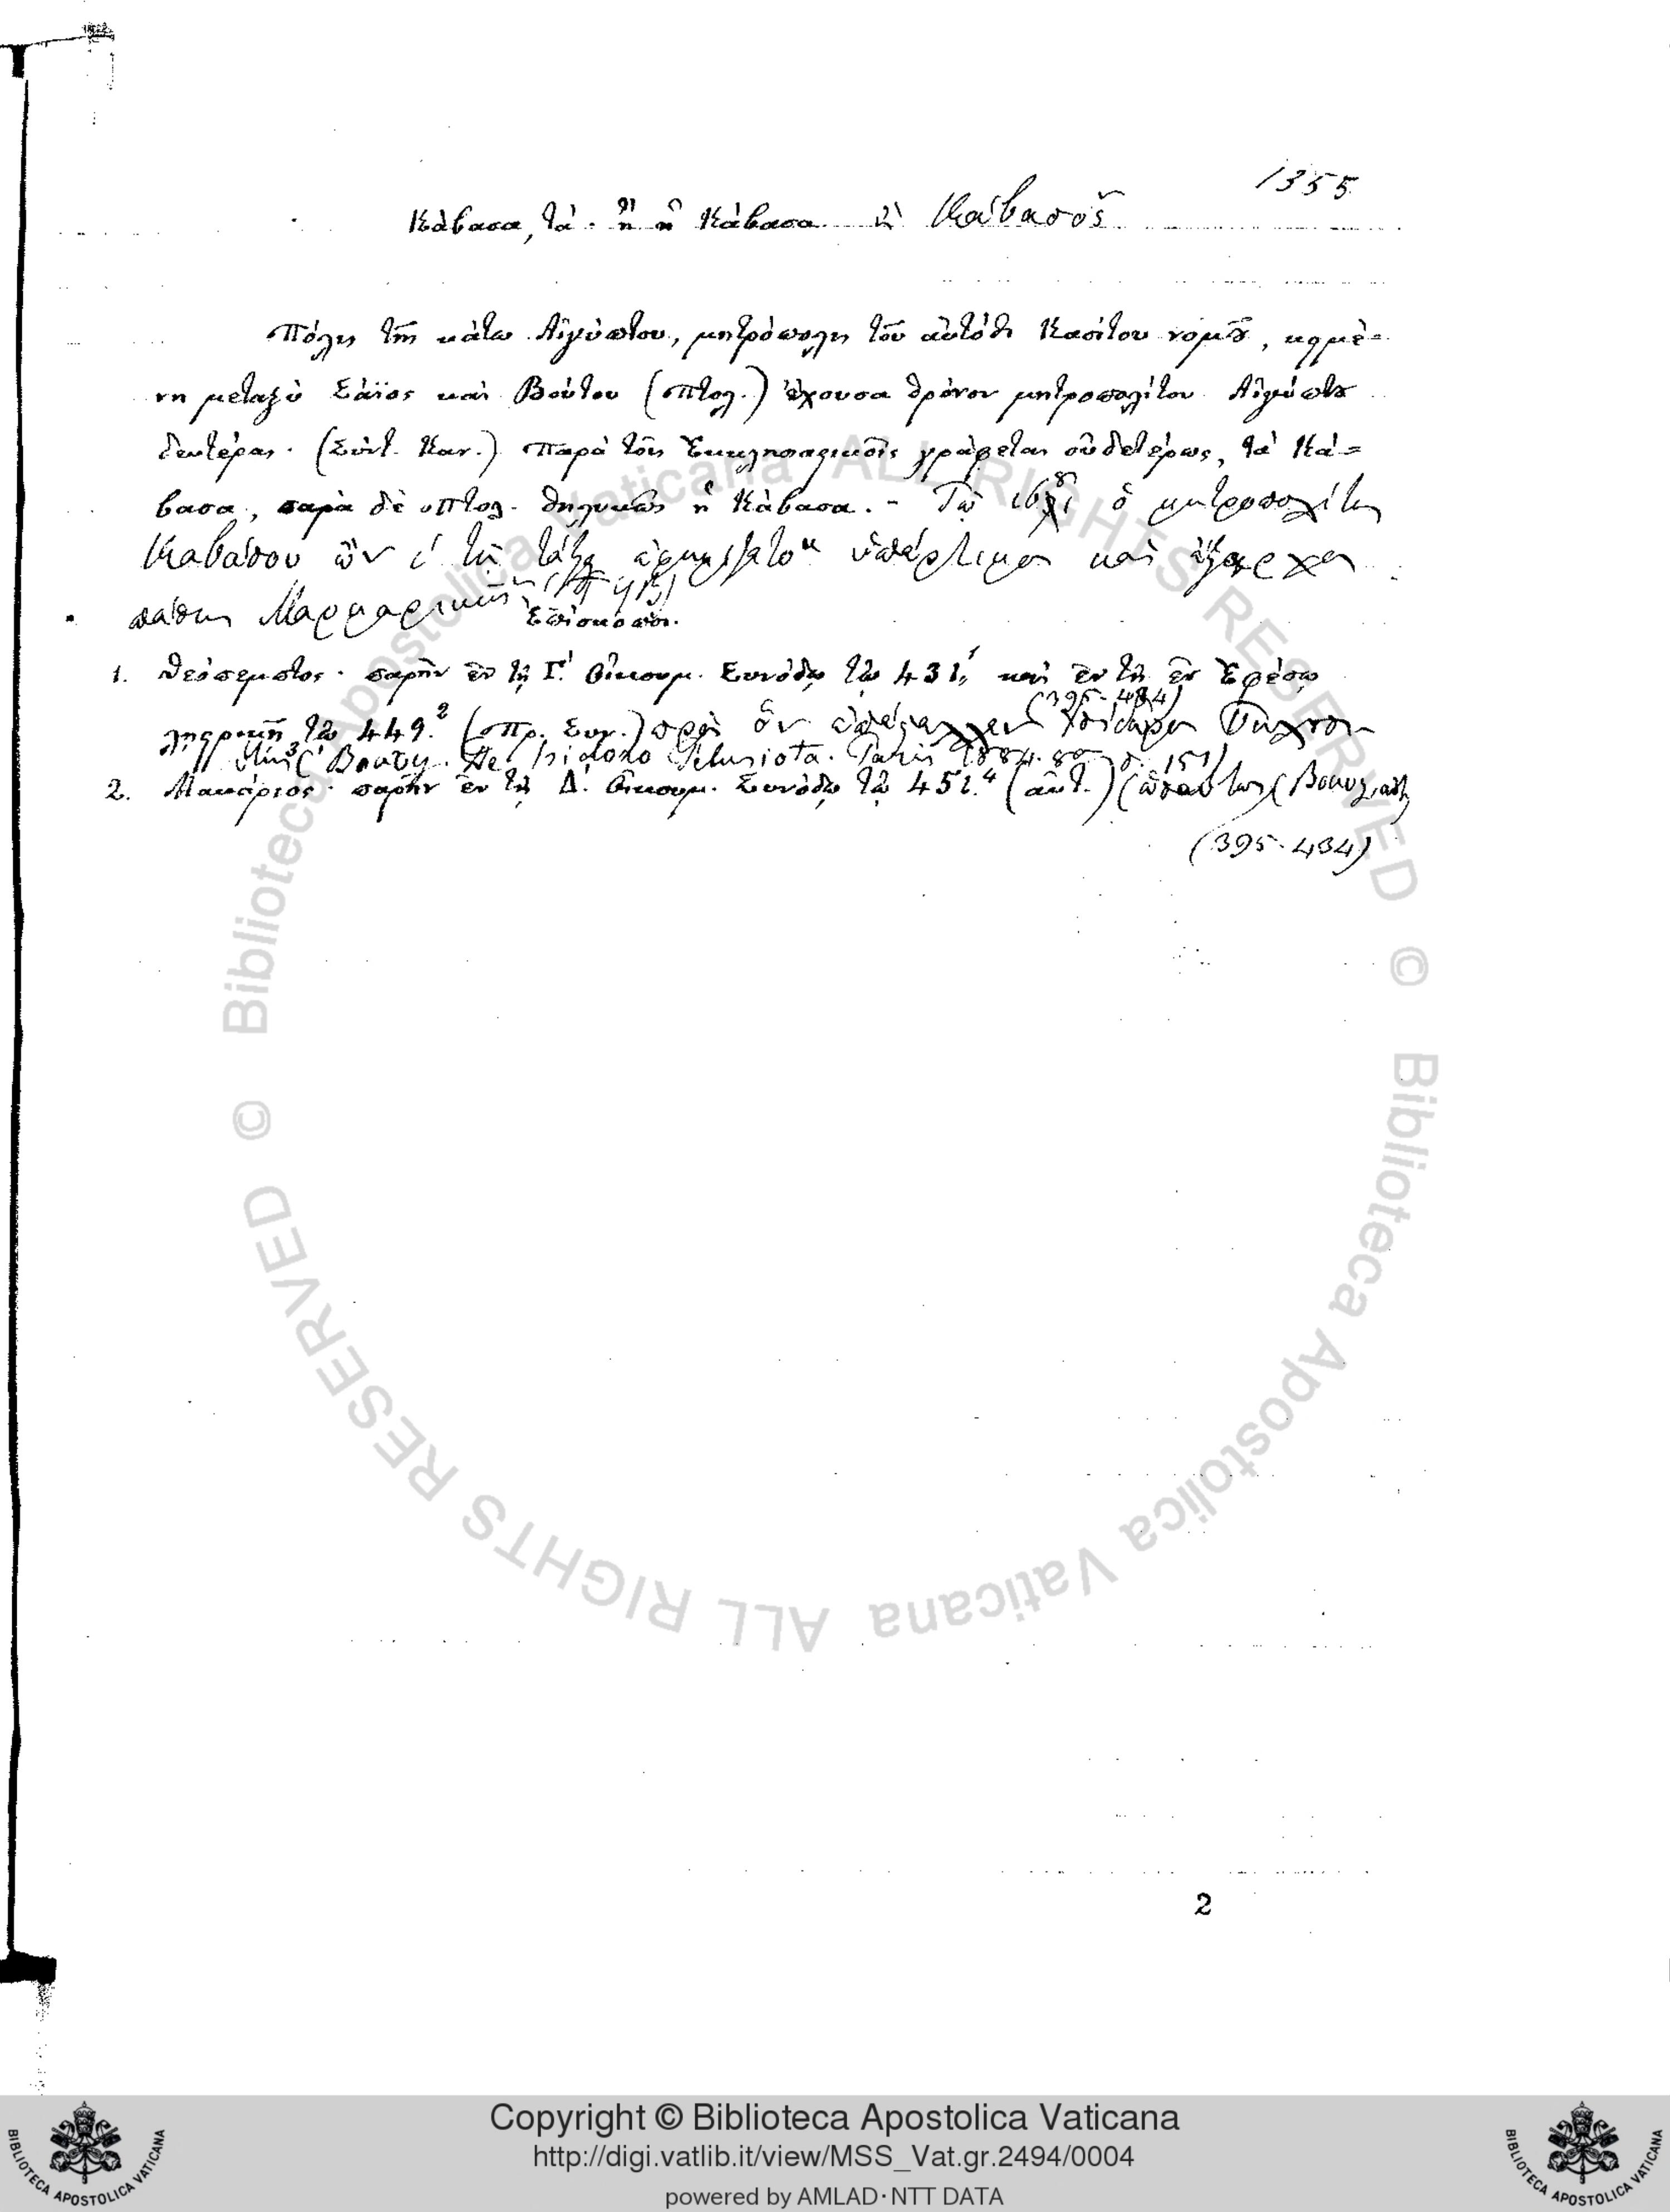 1355
Κάβασα, τὰ. ἢ ἡ Κάβασα. ἢ Κάβασος
Πόλις τῆς κάτω Αἰγύπτου, μητρόπολις τοῦ αὐτόθι Κασίτου νομοῦ, κειμέ=
νη μεταξὺ Σάϊος καὶ Βούτου (Πτολ.) ἔχουσα θρόνον μητροπολίτου Αἰγύπτου
δευτέρας. (Σύντ. Καν.) Παρὰ τοῖς Ἐκκλησιαστικοῖς γράφεται οὐδετέρως, τὰ Κά=
βασα, παρὰ δὲ Πτολ. θηλυκῶς ἡ Κάβασα. - Τῷ ὁ μητροπολίτης
Καβάσου ὢν τῇ τάξει ὑπέρτιμος καὶ ἔξαρχος
πάσης Μαρμαρικῆς
Ἐπίσκοποι.
1. Θεόπεμπτος. παρῆν ἐν τῇ Γ΄. Οἰκουμ. Συνόδῳ τῷ 431,¹ καὶ ἐν τῇ ἐν Ἐφέσῳ
(395-434)
λῃστρικῇ τῷ 449.² (Πρ. Συν.) πρὸς ὃν
Bouvy. De Isidoro Pelusiota. Paris 1884. 8º σ. 151)
2. Μακάριος. παρῆν ἐν τῇ Δ΄. Οἰκουμ. Συνόδῳ τῷ 451.⁴ (αὐτ.) (ὡσαύτως
(395-434)
2
© Biblioteca Apostolica Vaticana ALL RIGHTS RESERVED © Biblioteca Apostolica Vaticana ALL RIGHTS RESERVED
BIBLIOTECA APOSTOLICA VATICANA
Copyright © Biblioteca Apostolica Vaticana
http://digi.vatlib.it/view/MSS_Vat.gr.2494/0004
powered by AMLAD·NTT DATA
BIBLIOTECA APOSTOLICA VATICANA